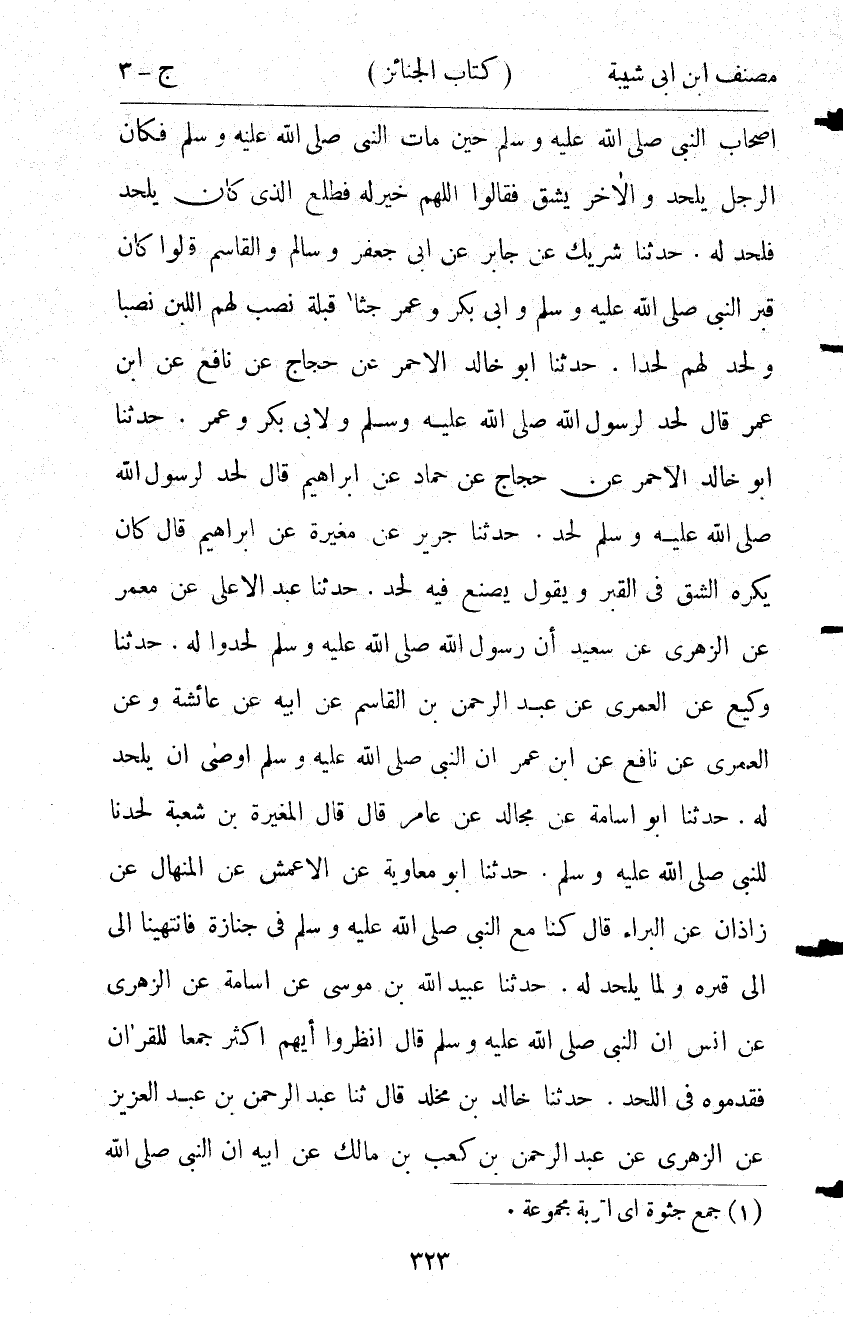 مصنف ابن ابى شيبة (كتاب الجنائز) ج - ٣
اصحاب النبى صلى الله عليه و سلم حين مات النبى صلى الله عليه و سلم فكان
الرجل يلحد و الآخر يشق فقالوا اللهم خيرله فطلع الذى كان يلحد
فلحد له . حدثنا شريك عن جابر عن ابى جعفر و سالم و القاسم قالوا كان
قبر النبى صلى الله عليه و سلم و ابى بكر و عمر جثا١ قبلة نصب لهم اللبن نصبا
و لحد لهم لحدا . حدثنا ابو خالد الاحمر عن حجاج عن نافع عن ابن
عمر قال لحد لرسول الله صلى الله عليه وسلم و لابى بكر و عمر . حدثنا
ابو خالد الاحمر عن حجاج عن حماد عن ابراهيم قال لحد لرسول الله
صلى الله عليه و سلم لحد . حدثنا جرير عن مغيرة عن ابراهيم قال كان
يكره الشق فى القبر و يقول يصنع فيه لحد . حدثنا عبد الاعلى عن معمر
عن الزهرى عن سعيد أن رسول الله صلى الله عليه و سلم لحدوا له . حدثنا
وكيع عن العمرى عن عبد الرحمن بن القاسم عن ابيه عن عائشة و عن
العمرى عن نافع عن ابن عمر ان النبى صلى الله عليه و سلم اوصى ان يلحد
له . حدثنا ابو اسامة عن مجالد عن عامر قال قال المغيرة بن شعبة لحدنا
للنبى صلى الله عليه و سلم . حدثنا ابو معاوية عن الاعمش عن المنهال عن
زاذان عن البراء قال كنا مع النبى صلى الله عليه و سلم فى جنازة فانتهينا الى
الى قبره و لما يلحد له . حدثنا عبيد الله بن موسى عن اسامة عن الزهرى
عن انس ان النبى صلى الله عليه و سلم قال انظروا أيهم اكثر جمعا للقرآن
فقدموه فى اللحد . حدثنا خالد بن مخلد قال ثنا عبد الرحمن بن عبد العزيز
عن الزهرى عن عبد الرحمن بن كعب بن مالك عن ابيه ان النبى صلى الله
(١) جمع جثوة اى اتربة مجموعة .
٣٢٣